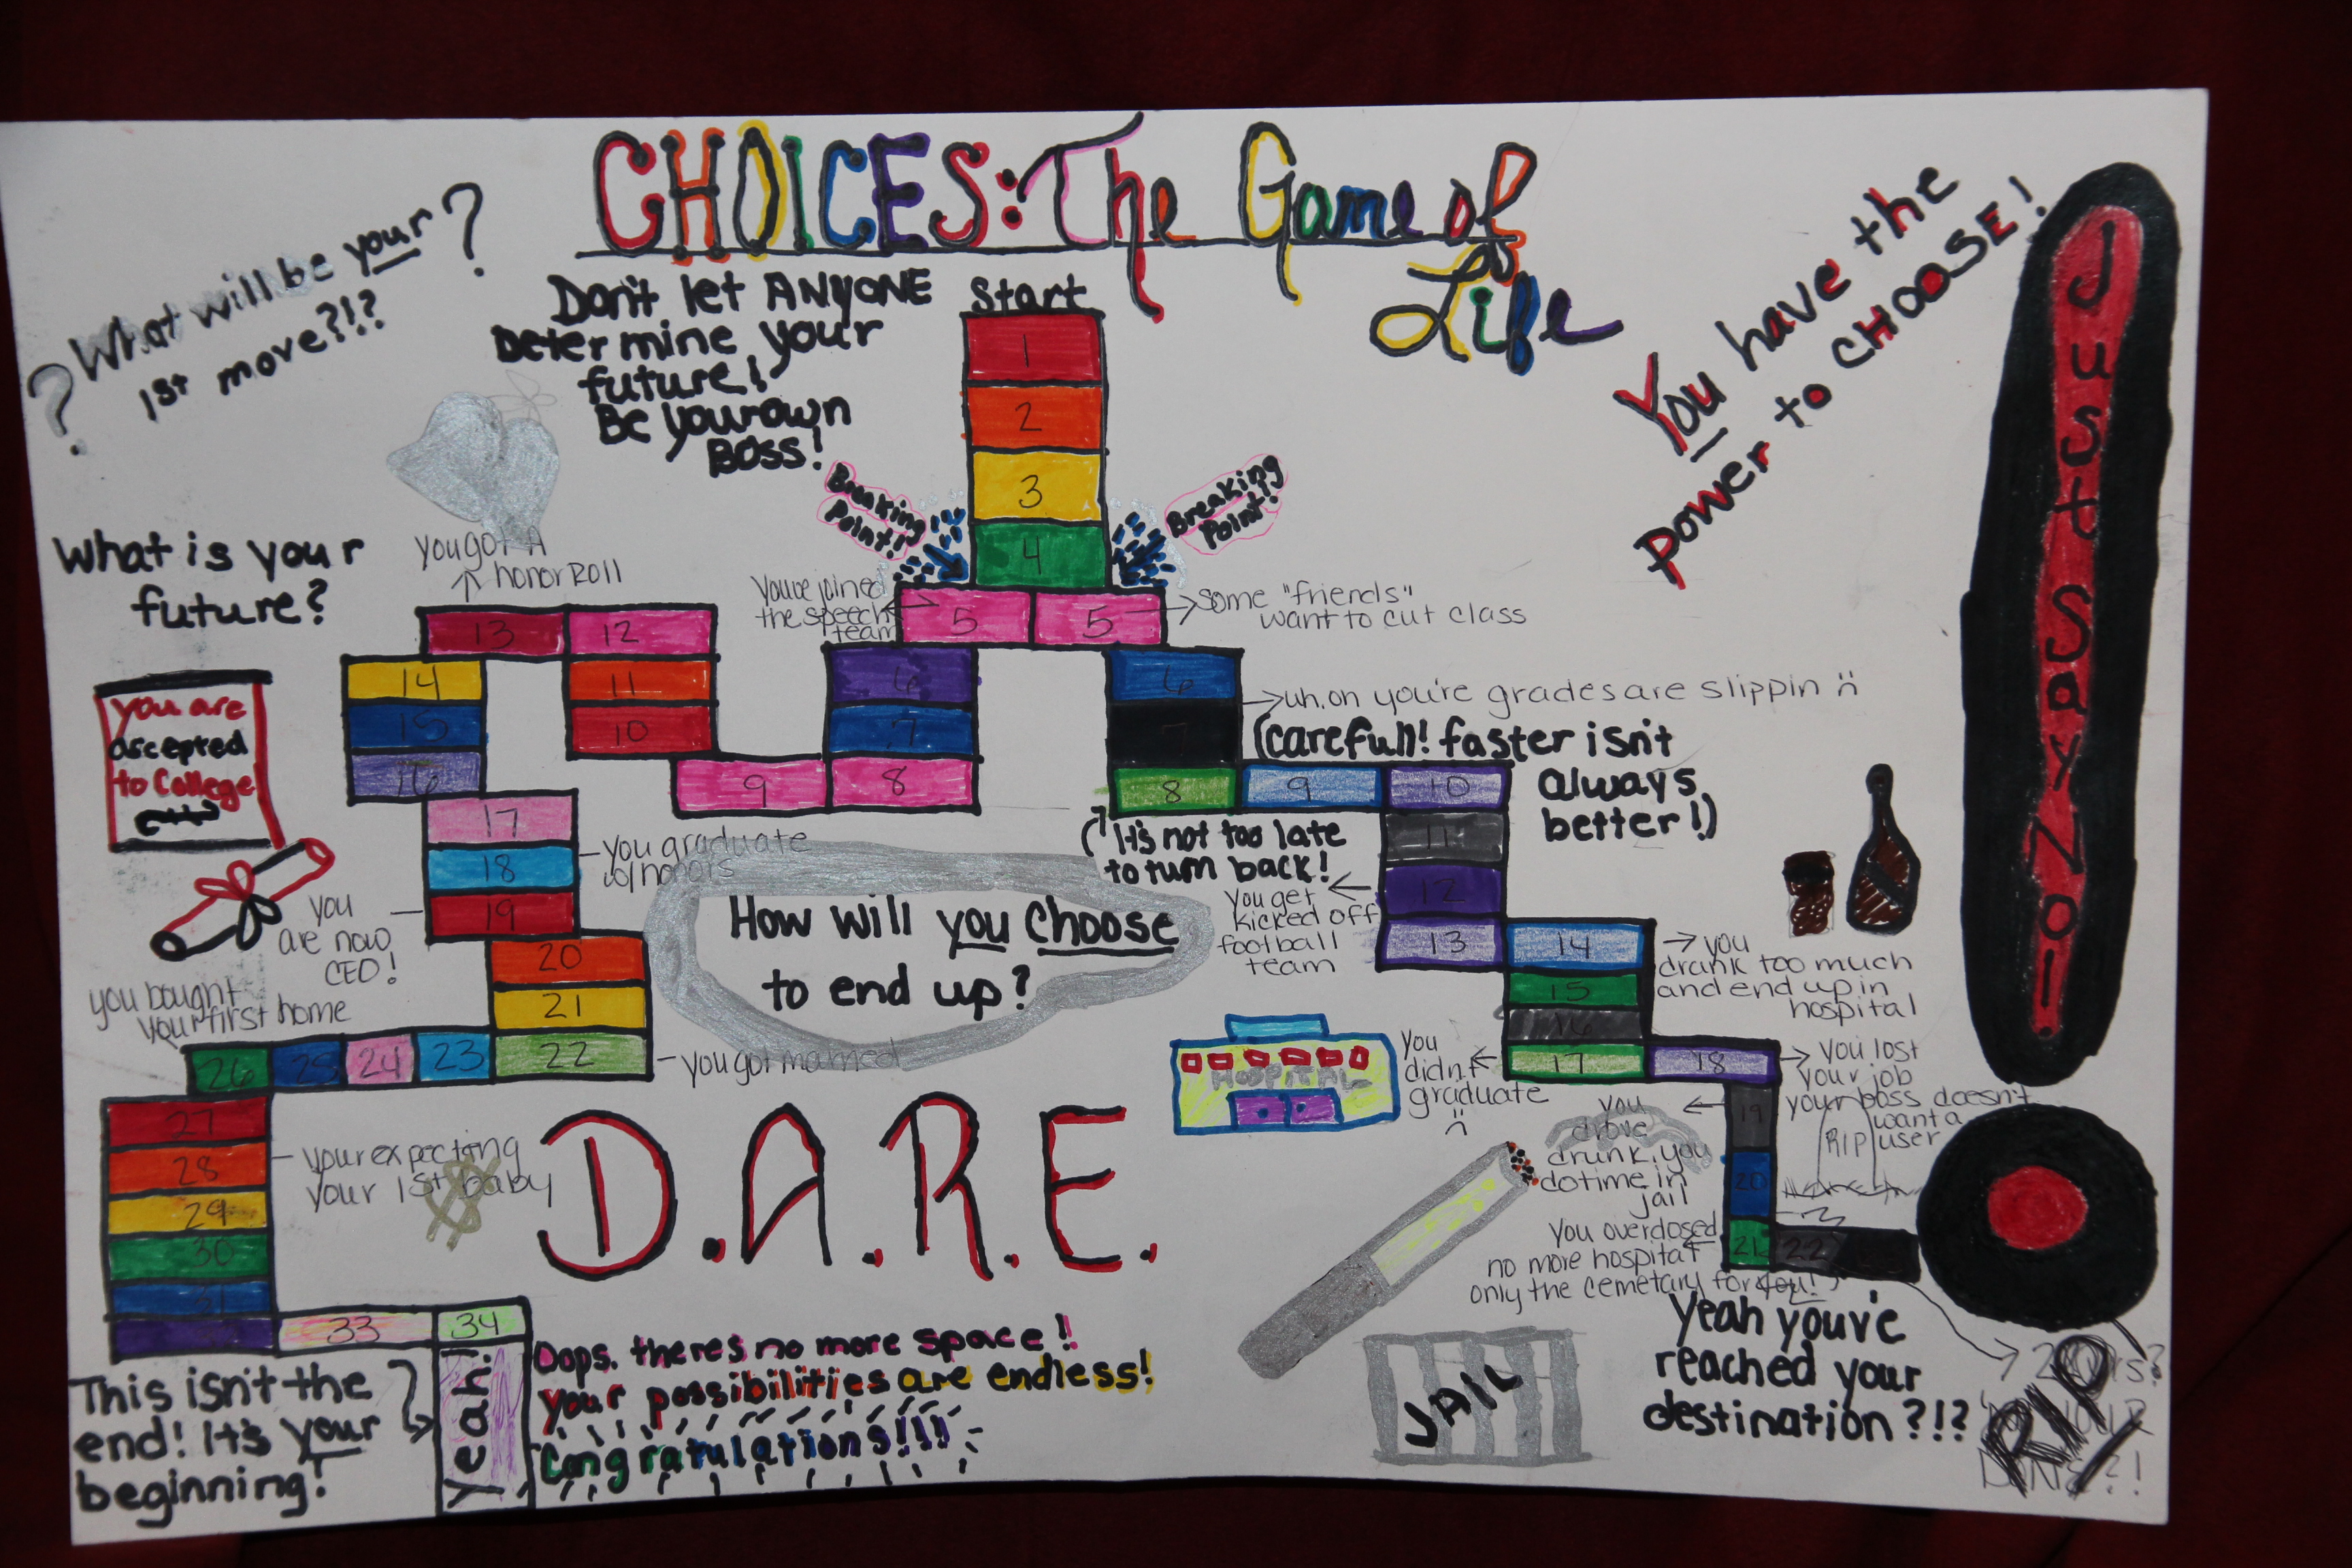 CHOICES: The Game of
Life
? What will be your ?
1st move?!?
Don't let ANYONE
Determine your
future!
Be your own
Boss!
Start
You have the
power to CHOOSE!
Just Say No!
1
2
3
4
Breaking
Point!
Breaking
Point!
5
5
You've joined
the speech
team
some "friends"
want to cut class
What is your
future?
you got A
honor Roll
13
12
14
11
15
10
16
9
8
7
6
6
7
8
9
10
uh.oh you're grades are slippin
(carefull! faster isn't
always
better!)
It's not too late
to turn back!
you are
accepted
to College
17
18
19
you graduate
w/honors
you
are now
CEO!
How will you choose
to end up?
11
12
13
14
You get
kicked off
football
team
you
drank too much
and end up in
hospital
you bought
your first home
20
21
22
23
24
25
26
you got married
15
16
17
18
HOSPITAL
You
didn't
graduate
you lost
your job
your boss doesn't
want a
user
RIP
27
28
29
30
31
33
34
your expecting
your 1st baby
D.A.R.E.
19
20
21
22
you
drove
drunk, you
do time in
jail
You overdosed
no more hospital
only the cemetary for you!
JAIL
Yeah youv'e
reached your
destination?!?
RIP
This isn't the
end! It's your
beginning!
Yeah!
Oops. theres no more space!!
your possibilities are endless!
Congratulations!!!!